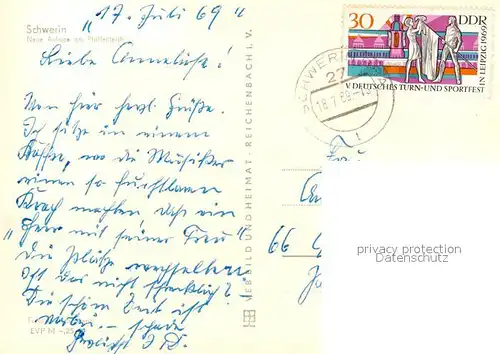 Schwerin
Neue Anlage am Pfaffenteich
"17. Juli 69"
Liebe Anneliese!
Von hier herzl. Grüße.
Ich sitze in einem
Kaffee, wo die Musiker
einen so furchtbaren
Krach machten, daß ein
"Herr mit seiner Frau"
die Plätze wechselten.
Ist das nicht schrecklich?
Die schöne Zeit ist
vorbei — schade
Herzlichst
EVP M –,25
VEB BILD UND HEIMAT · REICHENBACH I. V.
30 DDR
V. DEUTSCHES TURN- UND SPORTFEST
IN LEIPZIG 1969
SCHWERIN
27
18.7.69
Frau
66
privacy protection
Datenschutz